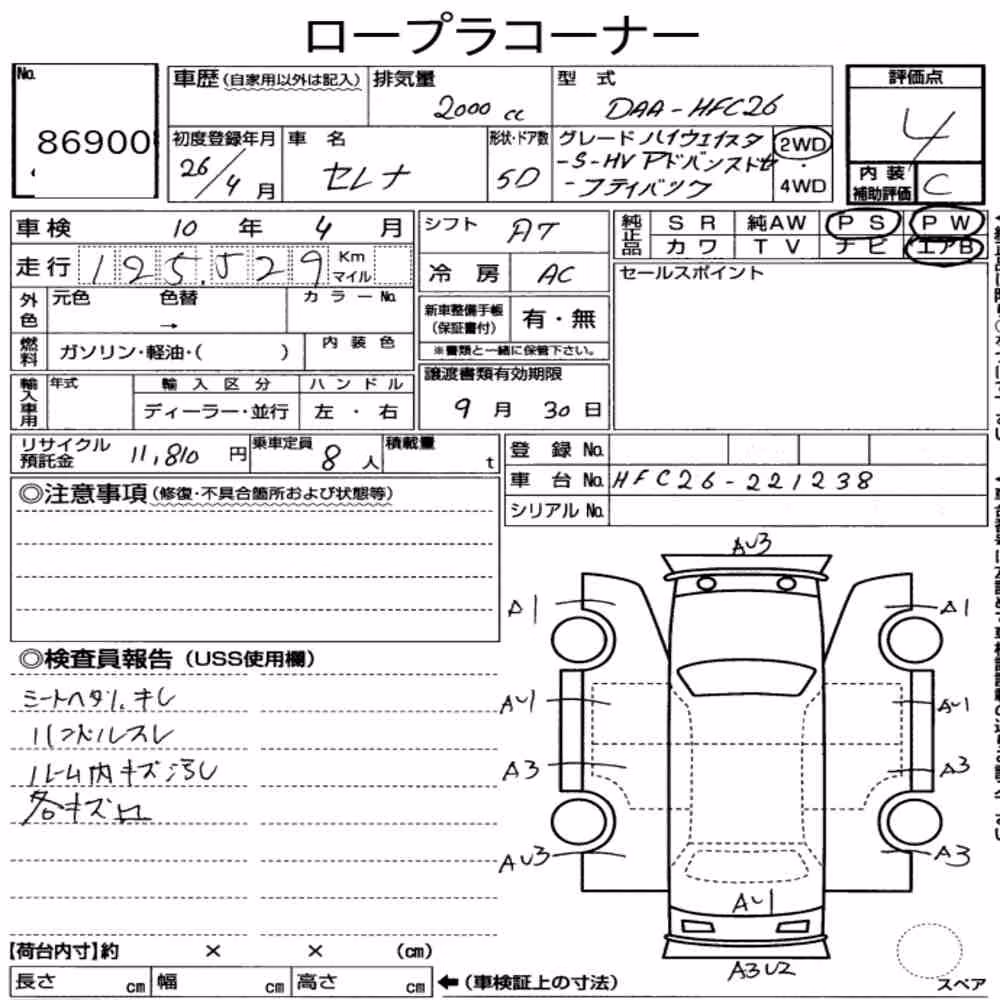 ロープラコーナー
No. 86900
車歴 (自家用以外は記入)
排気量 2000 cc
型式 DAA-HFC26
評価点 4
内装補助評価 C
初度登録年月 26/4 月
車名 セレナ
形状・ドア数 5D
グレード ハイウェイスタ
-S-HV アドバンスドセ
-フティパック
2WD・4WD
車検 10 年 4 月
走行 125,529 Km マイル
外色 元色 色替 → カラーNo.
燃料 ガソリン・軽油・( ) 内装色
輸入車用 年式 輸入区分 ハンドル
ディーラー・並行 左・右
シフト AT
冷房 AC
新車整備手帳(保証書付) 有・無
※書類と一緒に保管下さい。
譲渡書類有効期限
9 月 30 日
純正品 SR 純AW PS PW
カワ TV ナビ エアB
セールスポイント
リサイクル預託金 11,810 円
乗車定員 8 人
積載量 t
登録 No.
車台 No. HFC26-221238
シリアル No.
◎注意事項 (修復・不具合箇所および状態等)
◎検査員報告 (USS使用欄)
シートヘタリ、キレ
ハンドルスレ
ルーム内キズ汚レ
各キズ凹
AU3
A1 A1
AU1 AU1
A3 A3
AU3 A3
AU1
A3U2
スペア
【荷台内寸】約 × × (cm)
長さ cm 幅 cm 高さ cm ←(車検証上の寸法)